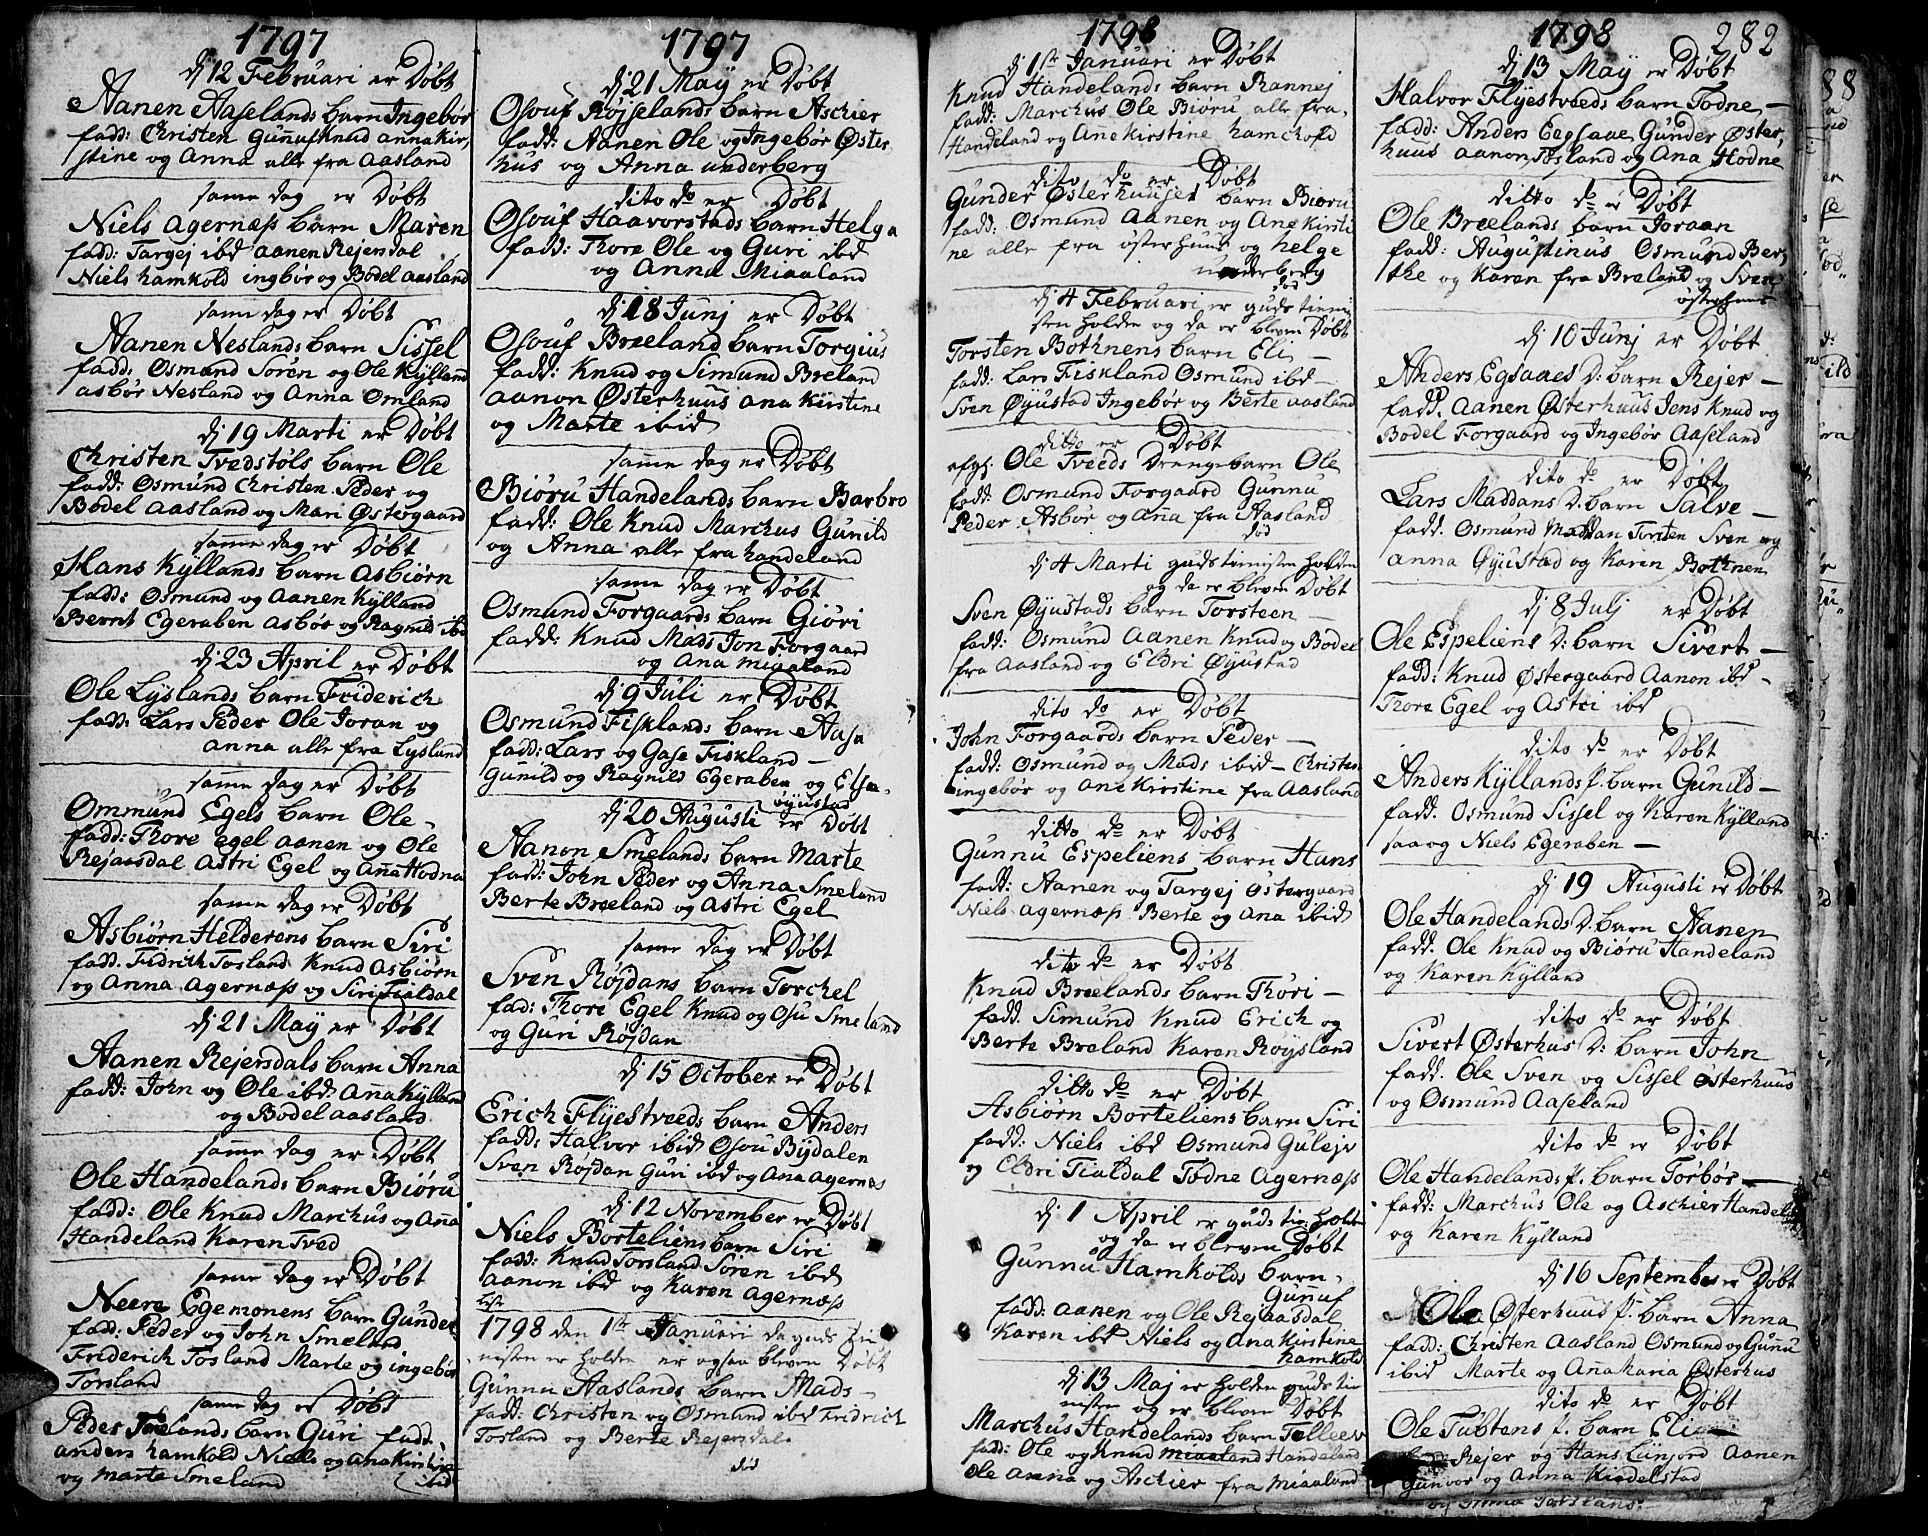 1797
dj 12 Februari er Døbt
Aanen Aaselands barn Ingebør
fadd: Christen Gunnuf Knud anna Kir,
stine og Anna alle fra Aasland
samme dag er Døbt
Niels Agernæss barn Maren
fadd: Targej ibd aanen Rejersdal
Niels hamkold ingbør og Bodel aasland
same dag er Døbt
Aanen Neslands barn Sissel
fadd: Osmund Søren og Ole Kÿlland
asbør Nesland og Anna Omland
dj 19 Marti er Døbt
Christen Tvedstøls barn Ole
fadd: Osmund Christen Peder og
Bodel aasland og Mari Østergaard
samme dag er Døbt
Hans Kÿllands barn Asbiørn
fadd: Osmund og Aanen Kÿlland
Bernt Egeraben asbør og Ragnild ibd
dj 23 April er Døbt
Ole Lÿslands barn Friderich
fadd: Lars Peder Ole Joran og
anna alle fra Lyslund
samme dag er Døbt
Ommund Egels barn Ole
fadd: Thore Egel aanen og Ole
Rejersdal Astri Egel og Anna Hodna
samme dag er Døbt
Asbiørn Helderens barn Siri
fadd. Fridrich Tosland Knud Asbiørn
og Anna Agernæss og Siri Fialdal
dj 21 Maÿ er Døbt
Aanen Rejersdals barn Anna
fadd: John og Ole ibd: Anna Kÿlland
og Bodel aasland
samme dag er Døbt
Ole Handelands barn Biøru
fadd: Ole Knud Marchus og Anna
Handeland Karen Tved
samme dag er Døbt
Neere Egemonens barn Gunder
fad: Peder og John Smeland
Friderich Tosland Marte og ingebør
Torsland
samme dag er Døbt
Peder Smelands barn Guri fadd.
anders hamkold Niels og ana Kirstine
og marte Smeland ibid
1797
dj 21 Maÿ er Døbt
Osouf Røjselands barn Aschier
fadd: Aanen Ole og Ingebør Øster
hus og Anna underberg
dito do er Døbt
Osouf Haavorstads barn Helga
fadd: Thore Ole og Guri ibd
og Anna Miaaland
dj 18 Junj er Døbt
Osouf Breeland barn Torgius
fadd: Knud og Simund Breland
aanon Østerhuus ana Kirstine
og Marte ibid
samme dag er Døbt
Biøru Handelands barn Barbro
fadd: Ole Knud Marchus Gunild
og Anna alle fra handeland
samme dag er Døbt
Osmund Forgaards barn Giøri
fadd: Knud Mads Jon Forgaard
og Ana miaaland
dj 9 Juli er Døbt
Osmund Fisklands barn Aasa
fadd: Lars og Gase Fiskland
Gunild og Ragnild Egeraben og Else
Øyustad
dj 20 Augusti er Døbt
Aanon Smelands barn Marte
fadd: John Peder og Anna Smeland
Berte Breeland og Astri Egel
samme dag er Døbt
Sven Røjdans barn Torchel
fad: Thore Egel Knud og Osu Smeland
og Guri Røjdan
dj 15 October er Døbt
Erich Flÿestveeds barn Anders
fadd: Halvor ibid Osou Bÿdalen
Sven Røjdan Guri ibd og Ana Agernæs
dj 12 November er Døbt
Niels Borteliens barn Siri
fadd: Knud Torsland Søren ibd
aanon ibd og Karen Agernæss
1798 den 1ste Januari da guds tie
nisten er holden er ogsaa bleven Døbt
Gunnu Aaslands barn Mads
fadd: Christen og Osmund ibd Fridrich
Tosland og Berte Rejersdal
død
1798
dj 1ste Januari er Døbt
Knud Handelands barn Rannej
fadd: Marchus Ole Biøru alle fra
Handeland og Ane Kirstine hamchold
dito do er Døbt
Gunder Østerhuuset barn Biøru
fadd: Osmund Aanen og Ane Kirsti
ne alle fra østerhuus og helge
underberg
død
dj 4 Februari er guds tienni
sten holden og da er bleven Døbt
Torsten Bothnens barn Eli
fadd: Lars Fiskland Osmund ibd
Sven Øyustad Ingebør og Berte aasland
ditto er Døbt
afgl. Ole Tveeds Drengebarn Ole
fadd Osmund Forgaard Gunnu
Peder Asbør og Anna fra Aasland
død
dj 4 Marti guds tienisten holden
og da er bleven Døbt
Sven Øyustads barn Torsteen
fadd: Osmund Aanen Knud og Bodel
fra Aasland og Eldri Øyustad
dito do er Døbt
John Forgaards barn Peder
fadd: Osmund og Mads ibid Christen
ingebør og Ane Kirstine fra Aasland
ditto do er Døbt
Gunnu Espeliens barn Hans
fadd: Aanen og Targej Østergaard
Niels Agernæss Berte og Ana ibid
dito do er Døbt
Knud Breelands barn Thori
fadd. Simund Knud Erich og
Berte Breland Karen Røysland
ditto do er Døbt
Asbiørn Borteliens barn Siri
fadd: Niels ibd Osmund Gulejv
og Eldri Fialdal Todne Agernæss
dj 1 April er guds tin: holden
og da er bleven Døbt
Gunnu Hamkolds barn
Gunuf
fadd: Aanen og Ole Rejaasdal
Karen ibd Niels og Ana Kirstine
hamkold
dj 13 Maj er holden guds tie
nisten og er bleven Døbt
Marchus Handelands barn Tolleev
fadd: Ole og Knud miaaland Handeland
Ole Anna og Aschier fra miaaland
1798 282
dj 13 Maÿ er Døbt
Halvor Flÿestveeds barn Todne
fadd: Anders Eegsaae Gunder Øster,
huus aanon Tosland og Ana Hodne
ditto do er Døbt
Ole Breelands barn Joraan
fadd: Augustinus Osmund Ber
the og Karen fra Breland og Sven
østerhuus
dj 10 Junj er Døbt
Anders Egsaaes D: barn Rejer
fadd. Aanen Østerhuus Jens Knud og
Bodel Forgaard og Ingebør Aaseland
dito do er Døbt
Lars Maddans D. barn Salve
fadd. Osmund Maddan Torsten Sven og
anna Øyustad og Karen Bothnen
dj 8 Julj er Døbt
Ole Espeliens D: barn Sivert
fadd: Knud Østergaard Aanon ibd
Thore Egel og Astri ibd
dito do er Døbt
Anders Kÿllands P. barn Gunild
fadd. Osmund Sissel og Karen Kÿlland
saaog Niels Egeraben
dj 19 Augusti er Døbt
Ole Handelands D. barn Aanen
fadd. Ole Knud og Biøru Handeland
og Karen Kÿlland
dito do er Døbt
Sivert Østerhus D: barn John
fadd. Ole Sven og Sissel østerhuus
og Osmund Aaseland
dito do er Døbt
Ole Handelands P. barn Torbør
fadd: Marchus Ole og Aschier Handeland
og Karen Kÿlland
dj 16 September er Døbt
Ole Østerhuus P. barn Anna
fadd: Christen Aasland Osmund og Gunnu
ibid Marte og Ana Maria Østerhus
dito do er Døbt
Ole Tubtens P. barn Eli
Rejer og Hans Liinjord Aanen
Gunvor og Anna Kindelstad
og Anna Torsland